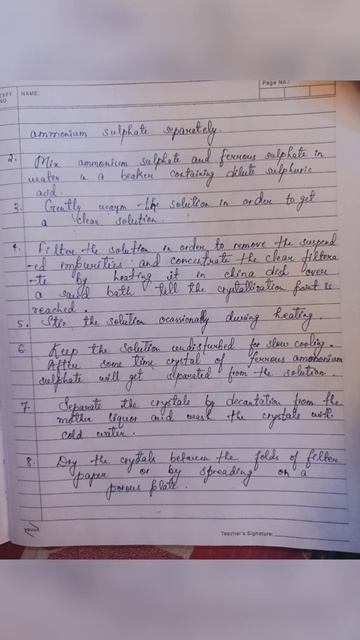 Page No.:
EXPT NO.
NAME:
ammonium sulphate separately.
2. Mix ammonium sulphate and ferrous sulphate in
water in a beaker containing dilute sulphuric
acid.
3. Gently warm the solution in order to get
a clear solution.
4. Filter the solution in order to remove the suspend
-ed impurities and concentrate the clear filtera
-te by heating it in china dish over
a sand bath till the crystallization point is
reached.
5. Stir the solution ocassionally during heating.
6. Keep the solution undisturbed for slow cooling.
After some time crystal of ferrous ammonium
sulphate will get separeted from the solution.
7. Separate the crystals by decantation from the
mother liquor and wash the crystals with
cold water.
8. Dry the crystals between the folds of filter
paper or by spreading on a
porous plate.
Teacher's Signature: